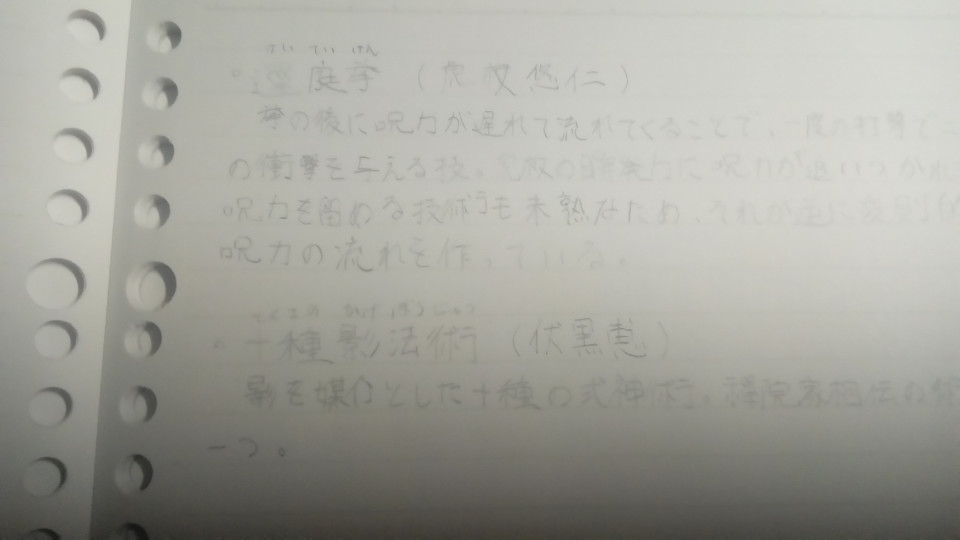 けいていけん
庭拳（虎杖悠仁）
拳の後に呪力が遅れて流れてくることで、一度の打撃で二
の衝撃を与える技。虎杖の瞬発力に呪力が追いつかれ
呪力を留める技術も未熟なため、それが逆に変則
呪力の流れを作っている。
とくさのかげぼうじゅつ
十種影法術（伏黒恵）
影を媒介とした十種の式神術。禪院家相伝の
一つ。